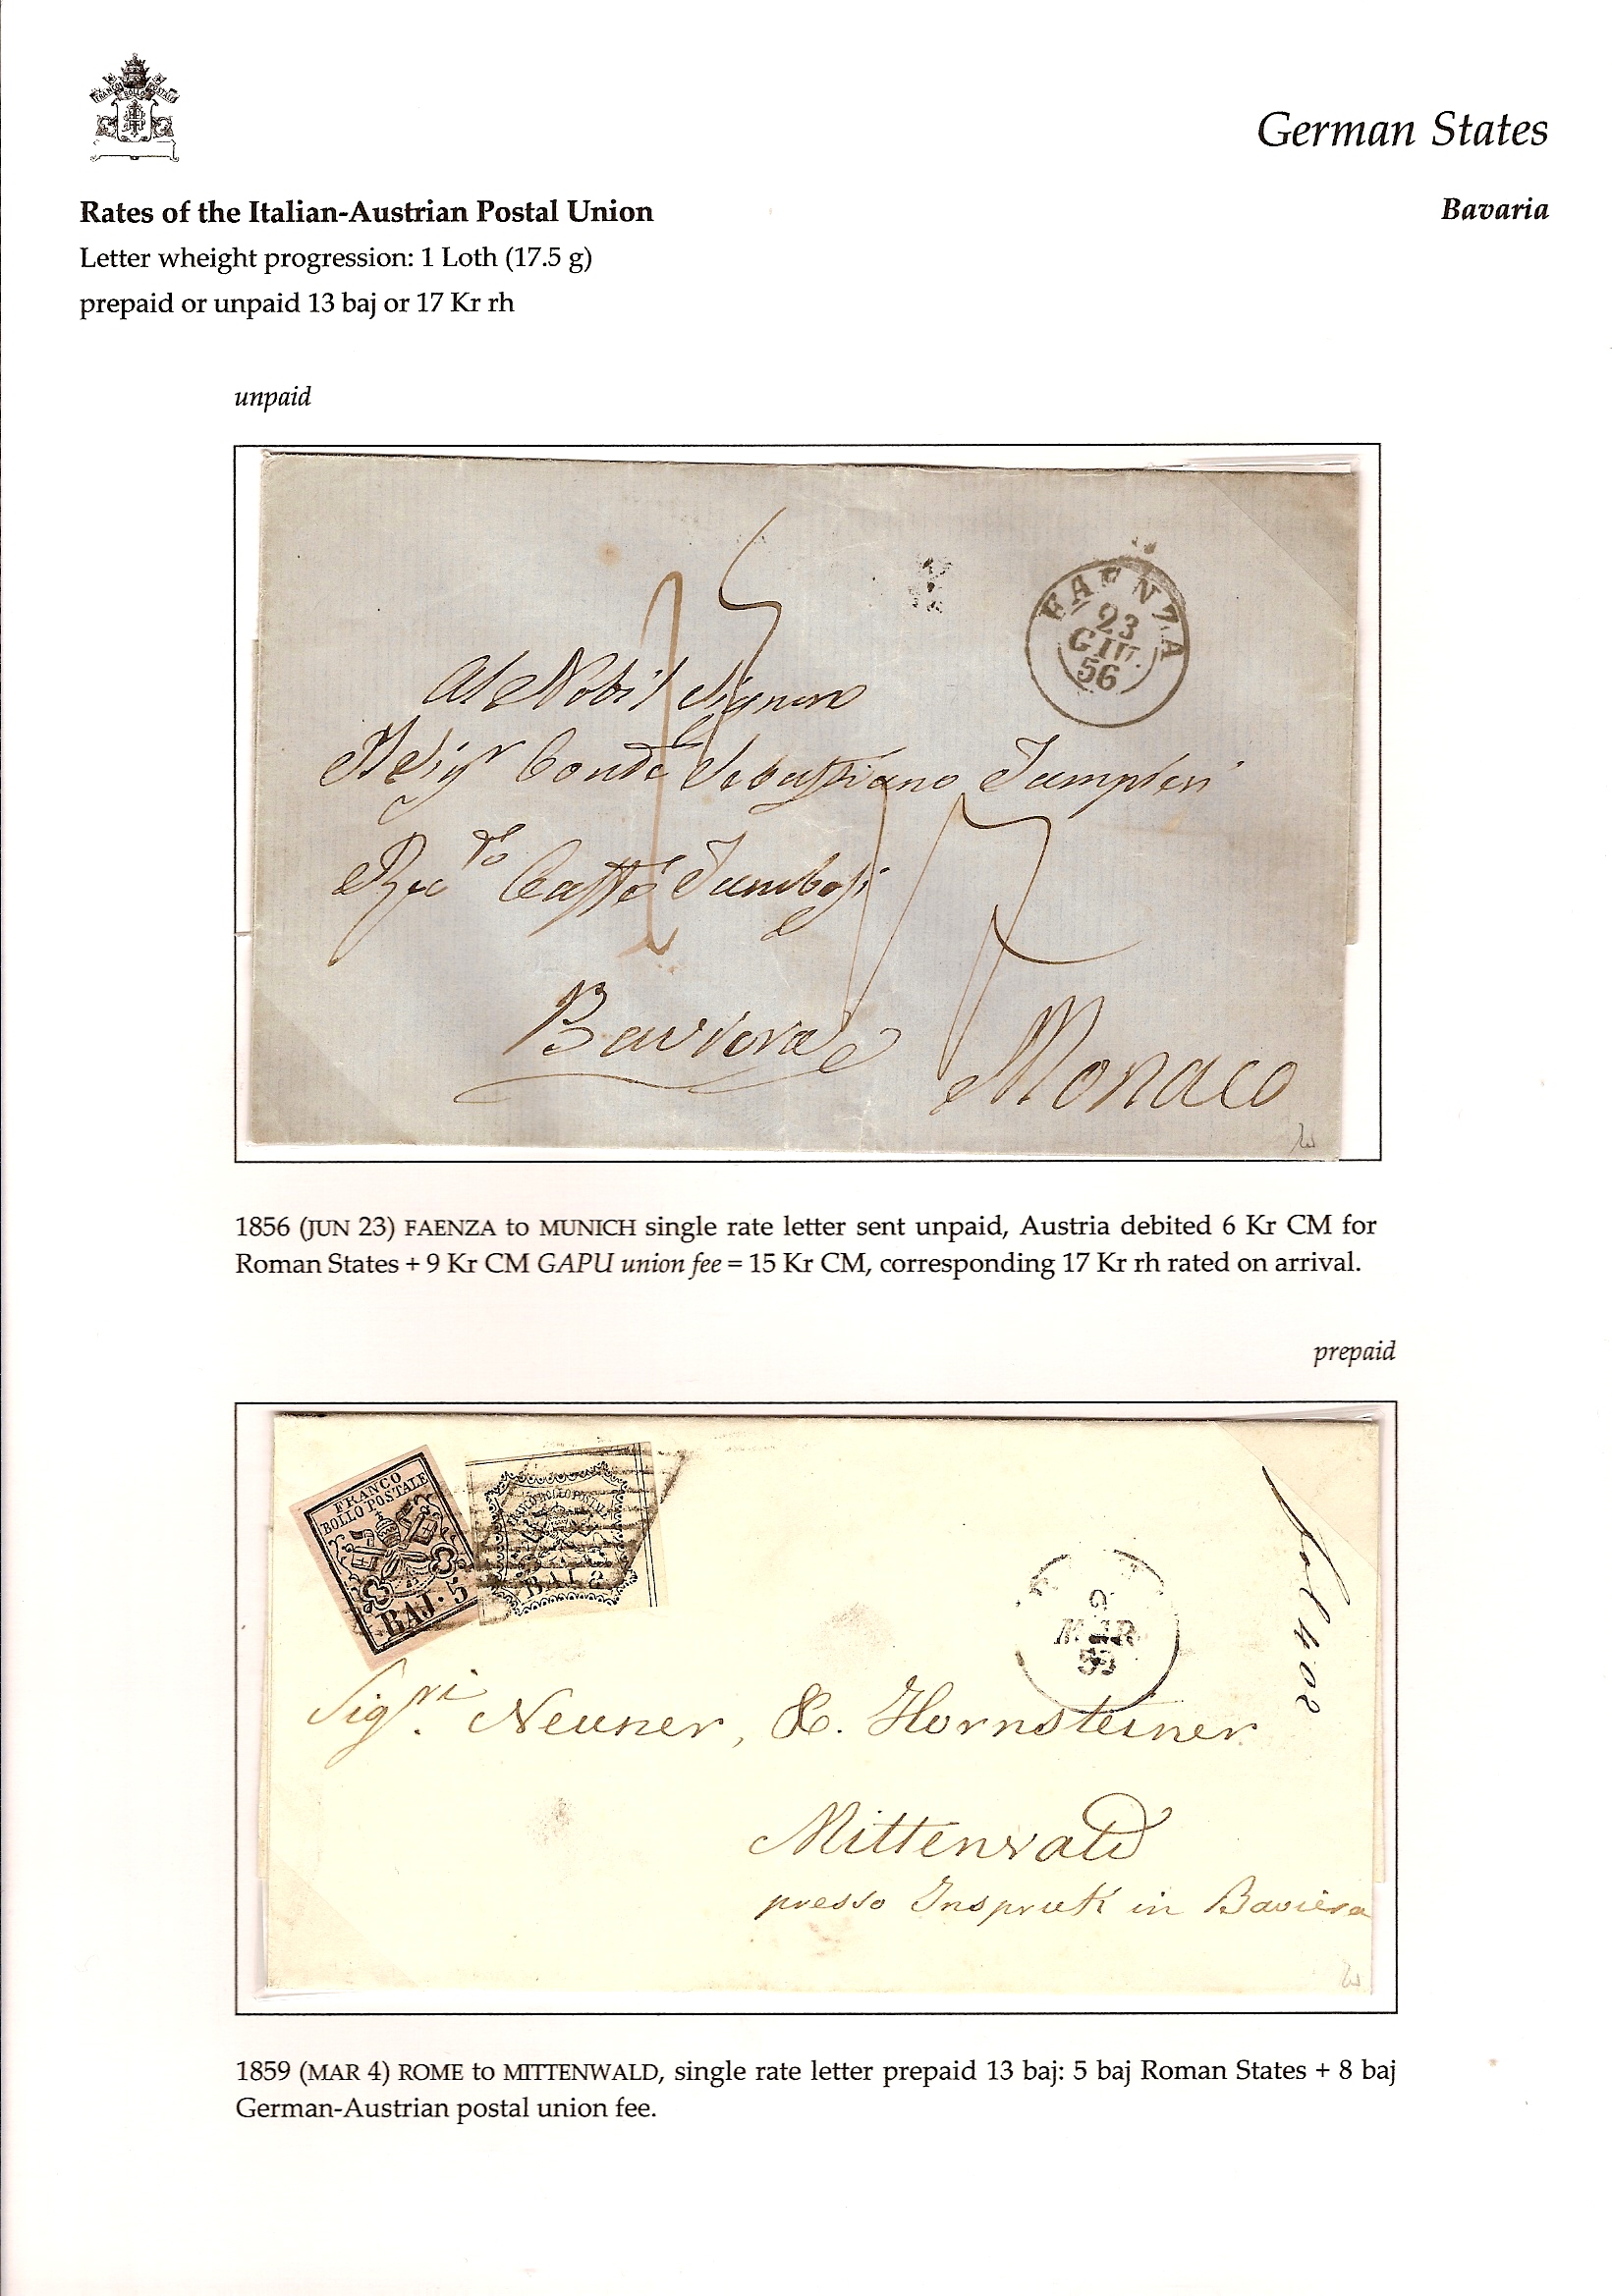 German States
Rates of the Italian-Austrian Postal Union
Bavaria
Letter wheight progression: 1 Loth (17.5 g)
prepaid or unpaid 13 baj or 17 Kr rh
unpaid
15
FAENZA
23
GIU.
56
Al Nobil Signore
Conte Sebastiano
Caffé
17
Baviera
Monaco
1856 (JUN 23) FAENZA to MUNICH single rate letter sent unpaid, Austria debited 6 Kr CM for
Roman States + 9 Kr CM GAPU union fee = 15 Kr CM, corresponding 17 Kr rh rated on arrival.
prepaid
FRANCO
BOLLO POSTALE
BAJ. 5
FRANCO BOLLO POSTALE
BAJ. 8
MAR
59
Sigri. Neuner, & Hornsteiner
Mittenvald
presso Inspruk in Baviera
1859 (MAR 4) ROME to MITTENWALD, single rate letter prepaid 13 baj: 5 baj Roman States + 8 baj
German-Austrian postal union fee.